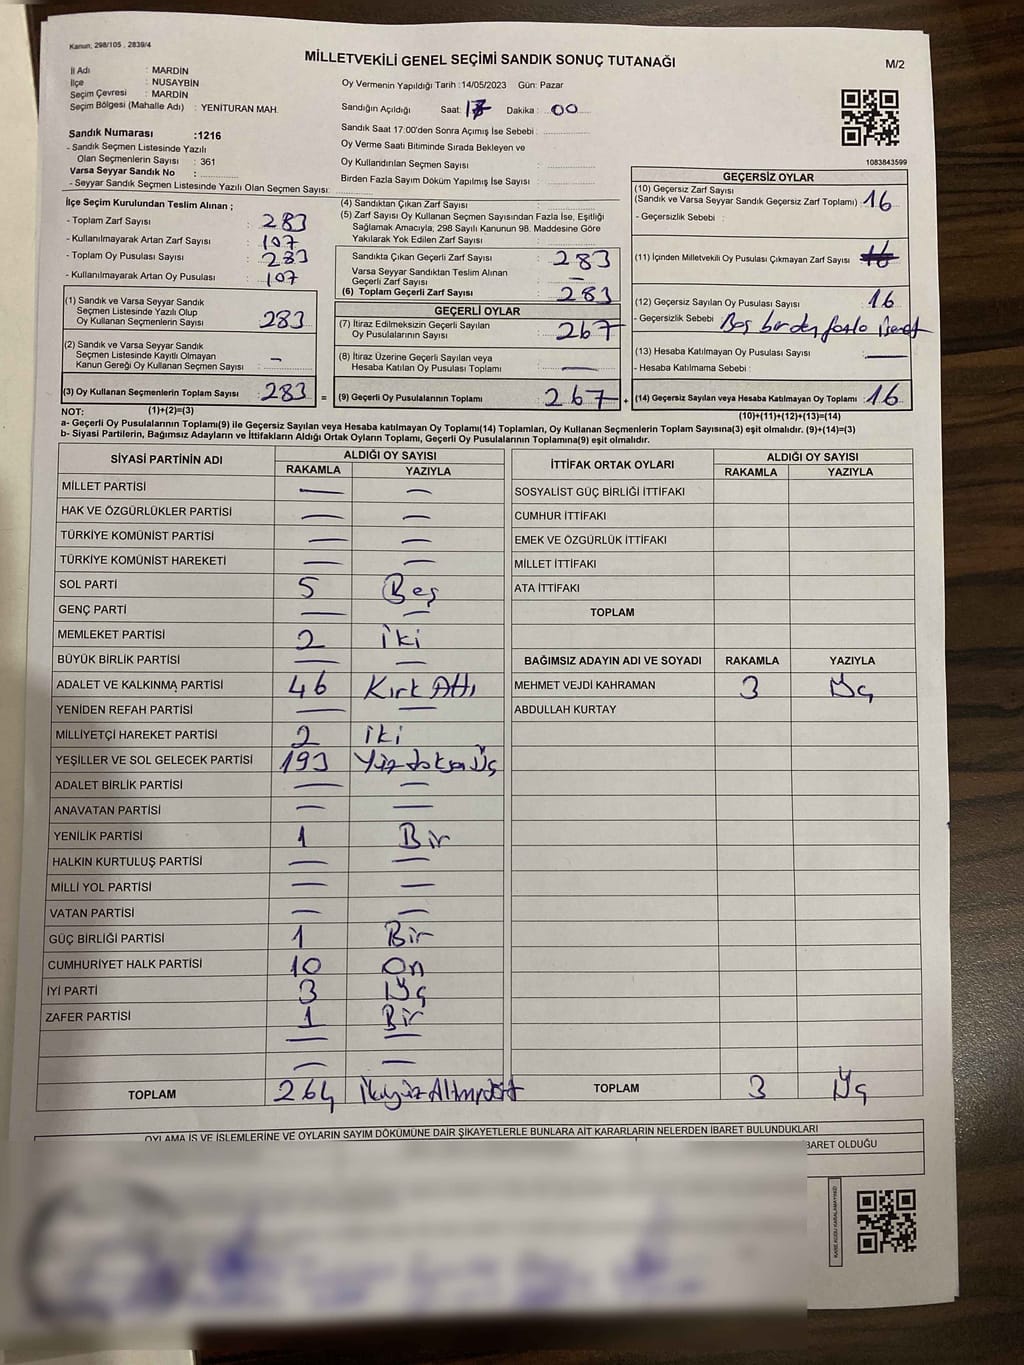 Kanun; 298/105 , 2839/4
MİLLETVEKİLİ GENEL SEÇİMİ SANDIK SONUÇ TUTANAĞI
M/2
İl Adı : MARDİN
İlçe : NUSAYBİN
Seçim Çevresi : MARDİN
Seçim Bölgesi (Mahalle Adı) : YENİTURAN MAH.
Oy Vermenin Yapıldığı Tarih :14/05/2023 Gün: Pazar
Sandığın Açıldığı Saat: 17 Dakika : 00
Sandık Saat 17:00'den Sonra Açımış İse Sebebi :
Oy Verme Saati Bitiminde Sırada Bekleyen ve
Oy Kullandırılan Seçmen Sayısı :
Birden Fazla Sayım Döküm Yapılmış İse Sayısı :
1083843599
Sandık Numarası :1216
- Sandık Seçmen Listesinde Yazılı
Olan Seçmenlerin Sayısı : 361
Varsa Seyyar Sandık No :
- Seyyar Sandık Seçmen Listesinde Yazılı Olan Seçmen Sayısı:
İlçe Seçim Kurulundan Teslim Alınan ;
- Toplam Zarf Sayısı : 283
- Kullanılmayarak Artan Zarf Sayısı : 107
- Toplam Oy Pusulası Sayısı : 283
- Kullanılmayarak Artan Oy Pusulası : 107
(1) Sandık ve Varsa Seyyar Sandık
Seçmen Listesinde Yazılı Olup
Oy Kullanan Seçmenlerin Sayısı 283
(2) Sandık ve Varsa Seyyar Sandık
Seçmen Listesinde Kayıtlı Olmayan
Kanun Gereği Oy Kullanan Seçmen Sayısı : -
(3) Oy Kullanan Seçmenlerin Toplam Sayısı : 283 =
(1)+(2)=(3)
(4) Sandıktan Çıkan Zarf Sayısı :
(5) Zarf Sayısı Oy Kullanan Seçmen Sayısından Fazla İse, Eşitliği
Sağlamak Amacıyla, 298 Sayılı Kanunun 98. Maddesine Göre
Yakılarak Yok Edilen Zarf Sayısı :
Sandıkta Çıkan Geçerli Zarf Sayısı : 283
Varsa Seyyar Sandıktan Teslim Alınan
Geçerli Zarf Sayısı : -
(6) Toplam Geçerli Zarf Sayısı : 283
GEÇERLİ OYLAR
(7) İtiraz Edilmeksizin Geçerli Sayılan
Oy Pusulalarının Sayısı : 267
(8) İtiraz Üzerine Geçerli Sayılan veya
Hesaba Katılan Oy Pusulası Toplamı : —
(9) Geçerli Oy Pusulalarının Toplamı : 267 +
GEÇERSİZ OYLAR
(10) Geçersiz Zarf Sayısı
(Sandık ve Varsa Seyyar Sandık Geçersiz Zarf Toplamı) : 16
- Geçersizlik Sebebi :
(11) İçinden Milletvekili Oy Pusulası Çıkmayan Zarf Sayısı : 16
(12) Geçersiz Sayılan Oy Pusulası Sayısı : 16
- Geçersizlik Sebebi : Boş birden fazla işaret
(13) Hesaba Katılmayan Oy Pusulası Sayısı : —
- Hesaba Katılmama Sebebi :
(14) Geçersiz Sayılan veya Hesaba Katılmayan Oy Toplamı : 16
(10)+(11)+(12)+(13)=(14)
NOT:
a- Geçerli Oy Pusulalarının Toplamı(9) ile Geçersiz Sayılan veya Hesaba Katılmayan Oy Toplamı(14) Toplamları, Oy Kullanan Seçmenlerin Toplam Sayısına(3) eşit olmalıdır. (9)+(14)=(3)
b- Siyasi Partilerin, Bağımsız Adayların ve İttifakların Aldığı Ortak Oyların Toplamı, Geçerli Oy Pusulalarının Toplamına(9) eşit olmalıdır.
SİYASİ PARTİNİN ADI ALDIĞI OY SAYISI
RAKAMLA YAZIYLA
MİLLET PARTİSİ — —
HAK VE ÖZGÜRLÜKLER PARTİSİ — —
TÜRKİYE KOMÜNİST PARTİSİ — —
TÜRKİYE KOMÜNİST HAREKETİ — —
SOL PARTİ 5 Beş
GENÇ PARTİ — —
MEMLEKET PARTİSİ 2 iki
BÜYÜK BİRLİK PARTİSİ — —
ADALET VE KALKINMA PARTİSİ 46 Kırk Altı
YENİDEN REFAH PARTİSİ — —
MİLLİYETÇİ HAREKET PARTİSİ 2 iki
YEŞİLLER VE SOL GELECEK PARTİSİ 193 Yüz doksan Üç
ADALET BİRLİK PARTİSİ — —
ANAVATAN PARTİSİ — —
YENİLİK PARTİSİ 1 Bir
HALKIN KURTULUŞ PARTİSİ — —
MİLLİ YOL PARTİSİ — —
VATAN PARTİSİ — —
GÜÇ BİRLİĞİ PARTİSİ 1 Bir
CUMHURİYET HALK PARTİSİ 10 On
İYİ PARTİ 3 Üç
ZAFER PARTİSİ 1 Bir
— —
— —
TOPLAM 264 ikiyüz Altmışdört
İTTİFAK ORTAK OYLARI ALDIĞI OY SAYISI
RAKAMLA YAZIYLA
SOSYALİST GÜÇ BİRLİĞİ İTTİFAKI
CUMHUR İTTİFAKI
EMEK VE ÖZGÜRLÜK İTTİFAKI
MİLLET İTTİFAKI
ATA İTTİFAKI
TOPLAM
BAĞIMSIZ ADAYIN ADI VE SOYADI RAKAMLA YAZIYLA
MEHMET VEJDİ KAHRAMAN 3 Üç
ABDULLAH KURTAY
TOPLAM 3 Üç
OYLAMA İŞ VE İŞLEMLERİNE VE OYLARIN SAYIM DÖKÜMÜNE DAİR ŞİKAYETLERLE BUNLARA AİT KARARLARIN NELERDEN İBARET BULUNDUKLARI
BARET OLDUĞU
KARE KODU KARALAMAYINIZ!